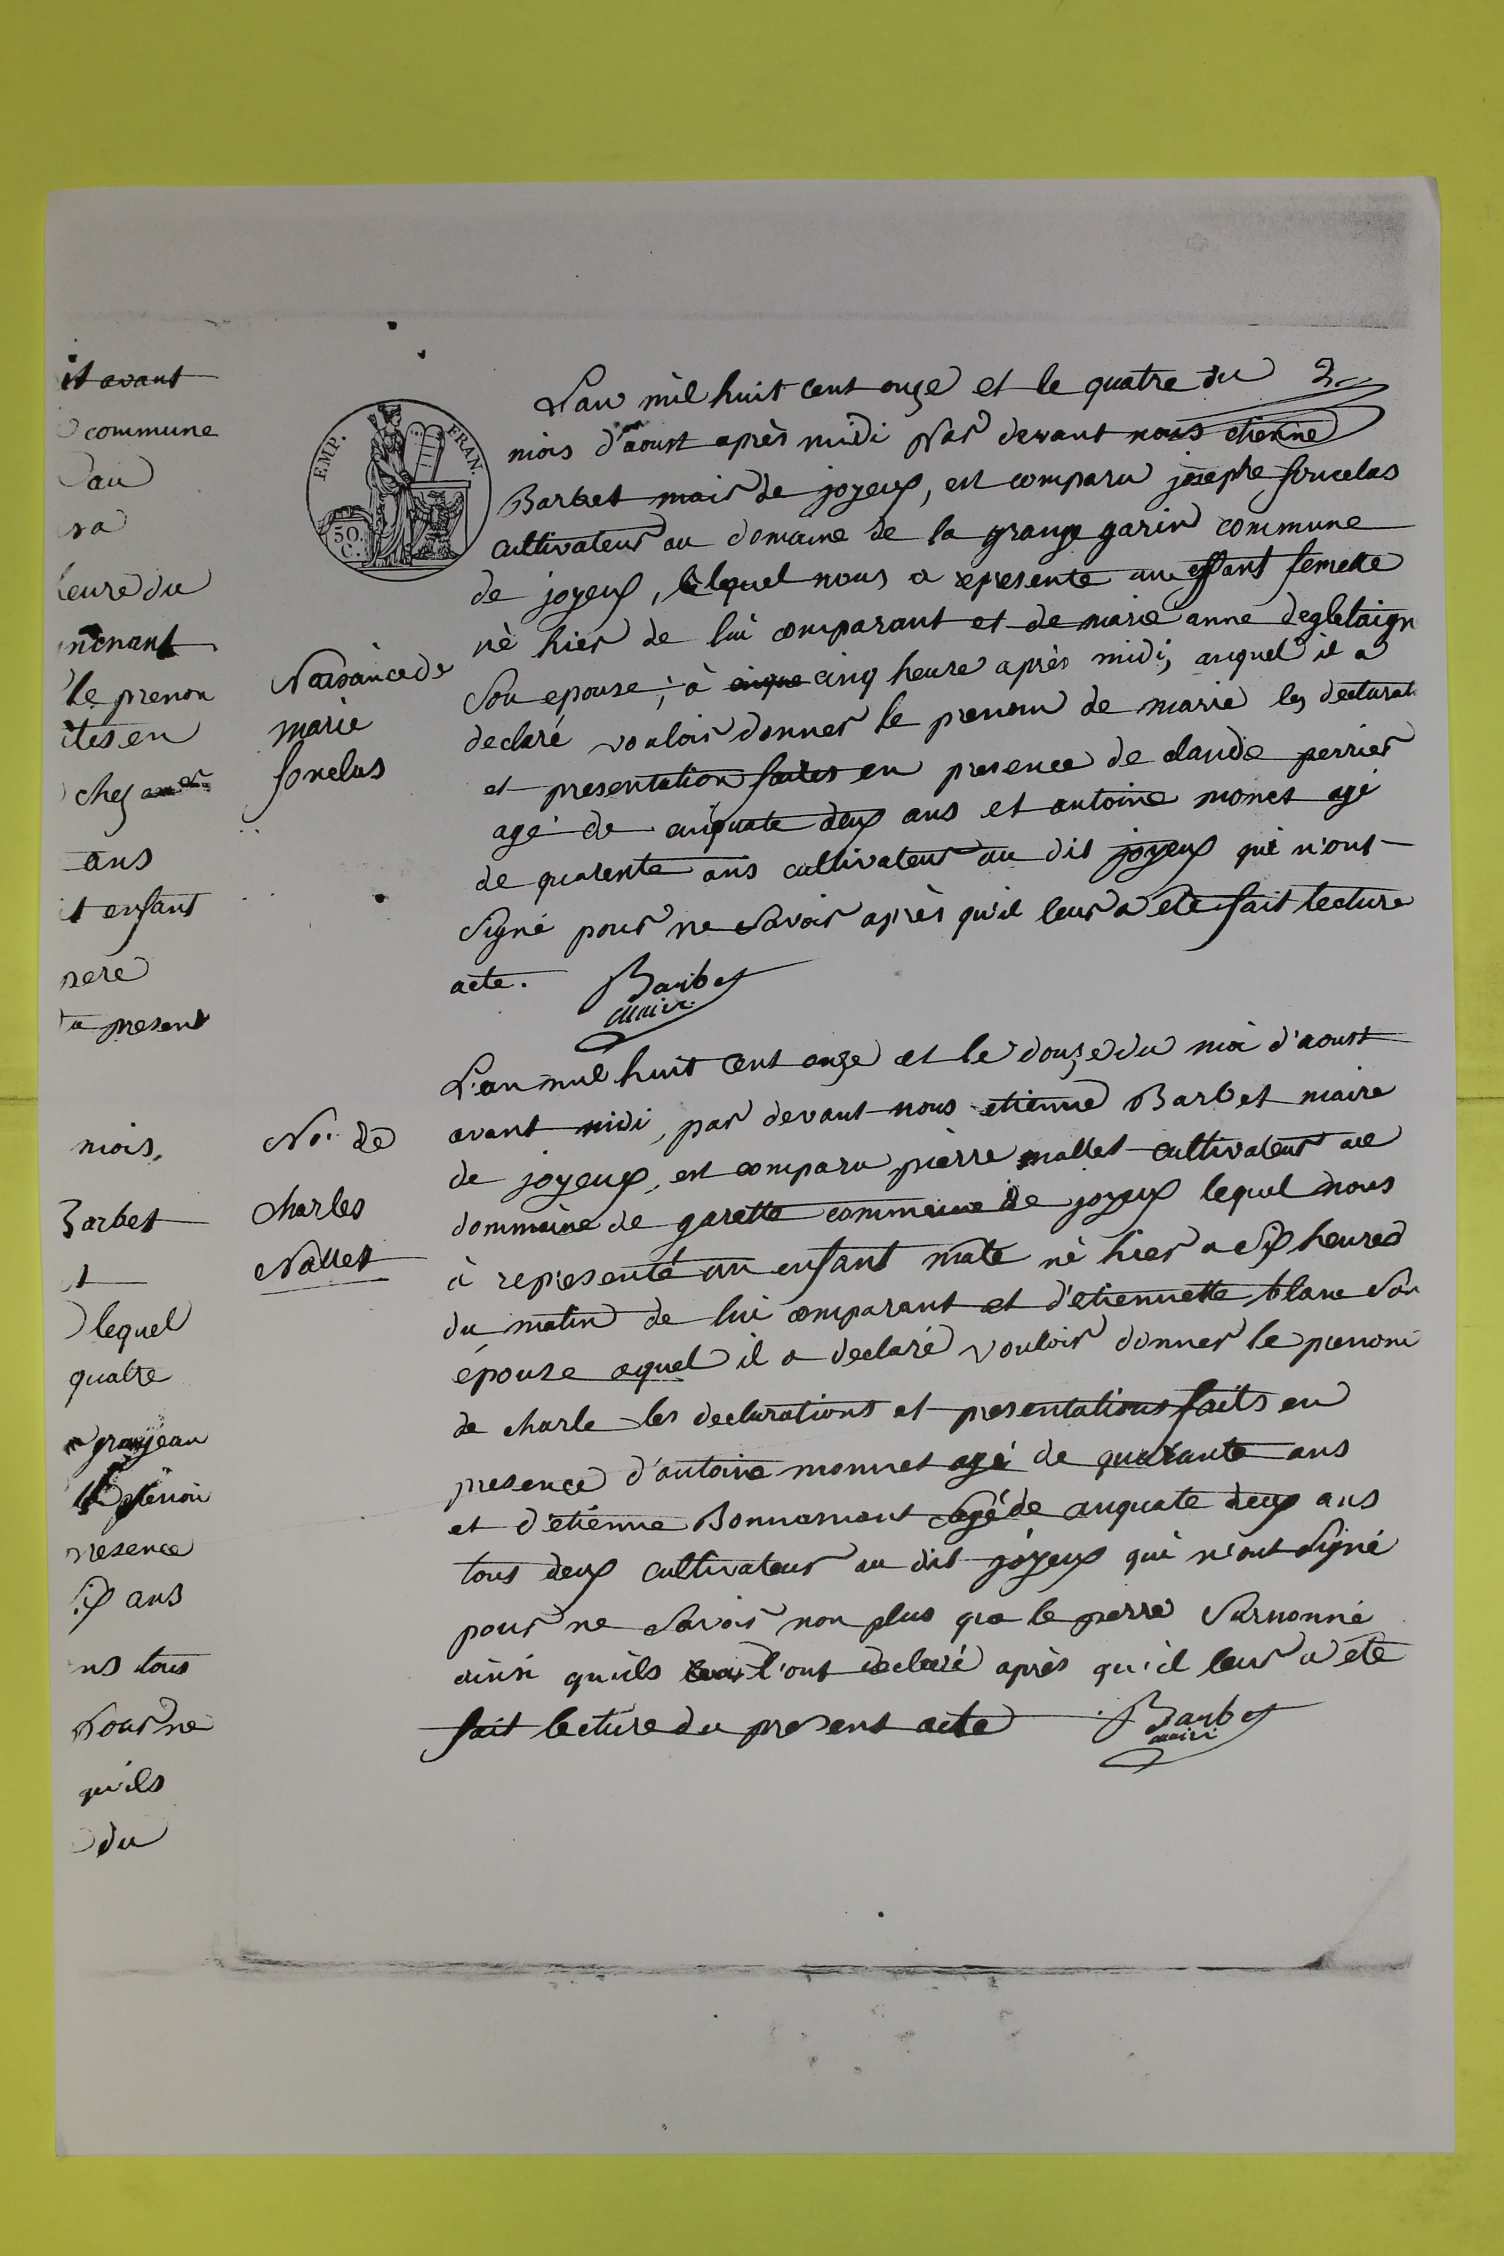 it avant
commune
au
sa
heure du
menant
le prenon
ites en
chez
ans
it enfant
pere
present
mois,
Barbet
lequel
quatre
granjean
presence
six ans
ns tous
pour ne
qu'ils
du
EMP. FRAN.
50 C.
Naisànce de
marie
fonclus
L'an mil huit cent onze et le quatre du
mois d'aoust après midi Par devant nous etienne
Barbet mair de joyeux, est comparu josephe
cultivateur au domaine de la grange garin commune
de joyeux, lequel nous a représenté un effant femelle
nè hier de lui comparant et de marie anne
Sou epouse, à cinq heure après midi, auquel il a
declaré vouloir donner le prenom de marie les declarat
et presentation faites en presence de claude perrier
agé de cinquate deux ans et antoine monet agé
de quarente ans cultivateur au dit joyeux qui n'ont
Signé pour ne Savoir après qu'il leur a été fait lecture
acte. Barbet
maire
No. de
charles
Nallet
L'an mil huit cent onze et le douze du moi d'aoust
avant midi, par devant nous etienne Barbet maire
de joyeux, est comparu pièrre mallet cultivateur au
dommaine de garette commeine de joyeux lequel nous
à representé un enfant male nè hier a Six heures
du matin de lui comparant et d'etiennette blanc Son
épouse aquel il a declaré vouloir donner le prenom
de charle les declarations et presentations faits en
presence d'antoine monnet agé de quarante ans
et d'etienne Bonnamant agé de cinquate deux ans
tous deux cultivateur au dit joyeux qui n'ont Signé
pour ne Savoir non plus que le perre Surnonné
ainsi qu'ils l'ont declaré après qu'il leur a été
fait lecture du present acte Barbet
maire